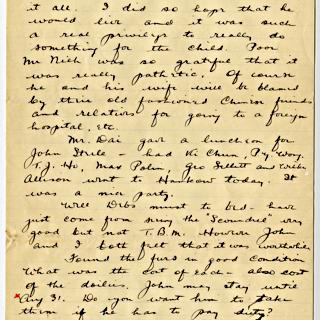 it all. I did so hope that he
would live and it was such
a real privilege to really do
something for the child. Poor
Mr Nieh was so grateful that it
was really pathetic. Of course
he and his wife will be blamed
by their old fashioned Chinese friends
and relatives for going to a foreign
hospital, etc.
Mr. Dai gave a luncheon for
John Steele - had Ki Chun, P.Y. Wong,
T.J. Ho, Max Palm, Geo
Allison went to Hankow today. It
was a nice party.
Will Debs must to bed - have
just come from seeing the "Scoundrel" very
good but not T.B.M. However John
and I both felt that it was worthwhile
Found the furs in good condition
What was the cost of each - also cost
of the doilies. John may stay until
Aug 31. Do you want him to take
them if he has to pay duty?